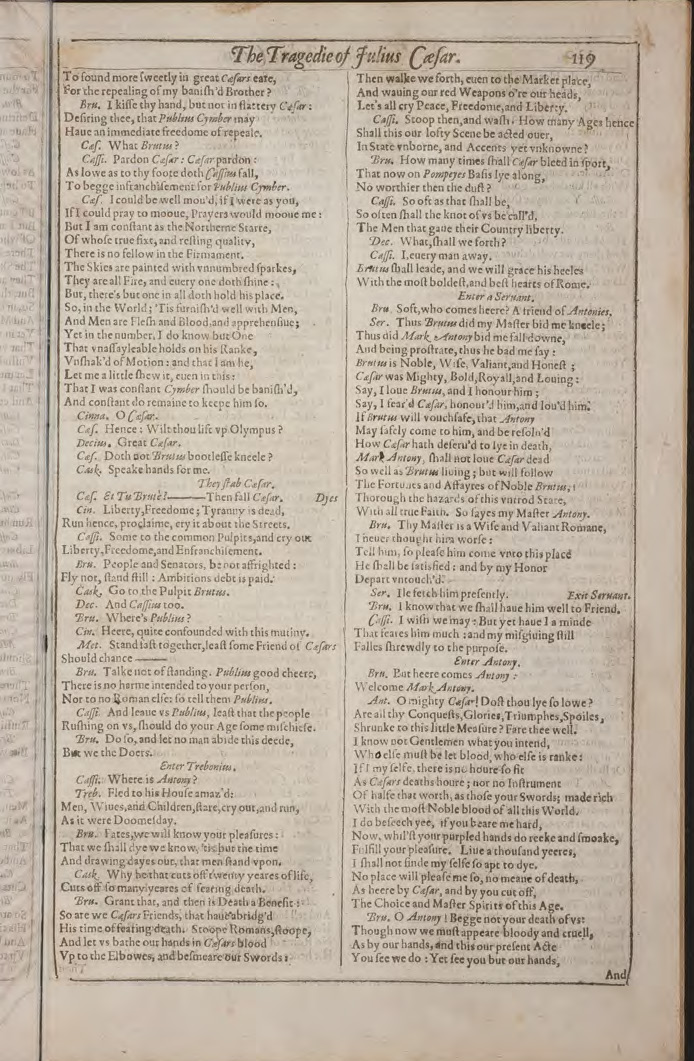 The Tragedie of Julius Cæsar. 119
To sound more sweetly in great Cæsars eare,
For the repealing of my banish'd Brother?
Bru. I kisse thy hand, but not in flattery Cæsar:
Desiring thee, that Publius Cymber may
Haue an immediate freedome of repeale.
Cæs. What Brutus?
Cassi. Pardon Cæsar: Cæsar pardon:
As lowe as to thy foote doth Cassius fall,
To begge infranchisement for Publius Cymber.
Cæs. I could be well mou'd, if I were as you,
If I could pray to mooue, Prayers would mooue me:
But I am constant as the Northerne Starre,
Of whose true fixt, and resting quality,
There is no fellow in the Firmament.
The Skies are painted with vnnumbred sparkes,
They are all Fire, and euery one doth shine:
But, there's but one in all doth hold his place.
So, in the World; 'Tis furnish'd well with Men,
And Men are Flesh and Blood, and apprehensiue;
Yet in the number, I do know but One
That vnassayleable holds on his Ranke,
Vnshak'd of Motion: and that I am he,
Let me a little shew it, euen in this:
That I was constant Cymber should be banish'd,
And constant do remaine to keepe him so.
Cinna. O Cæsar.
Cæs. Hence: Wilt thou lift vp Olympus?
Decius. Great Cæsar.
Cæs. Doth not Brutus bootlesse kneele?
Cask. Speake hands for me.
They stab Cæsar.
Cæs. Et Tu Brutè?——Then fall Cæsar. Dyes
Cin. Liberty, Freedome; Tyranny is dead,
Run hence, proclaime, cry it about the Streets.
Cassi. Some to the common Pulpits, and cry out
Liberty, Freedome, and Enfranchisement.
Bru. People and Senators, be not affrighted:
Fly not, stand still: Ambitions debt is paid.
Cask. Go to the Pulpit Brutus.
Dec. And Cassius too.
Bru. Where's Publius?
Cin. Heere, quite confounded with this mutiny.
Met. Stand fast together, least some Friend of Cæsars
Should chance——
Bru. Talke not of standing. Publius good cheere,
There is no harme intended to your person,
Nor to no Roman else: so tell them Publius.
Cassi. And leaue vs Publius, least that the people
Rushing on vs, should do your Age some mischiefe.
Bru. Do so, and let no man abide this deede,
But we the Doers.
Enter Trebonius.
Cassi. Where is Antony?
Treb. Fled to his House amaz'd:
Men, Wiues, and Children, stare, cry out, and run,
As it were Doomesday.
Bru. Fates, we will know your pleasures:
That we shall dye we know, 'tis but the time
And drawing dayes out, that men stand vpon.
Cask. Why he that cuts off twenty yeares of life,
Cuts off so many yeares of fearing death.
Bru. Grant that, and then is Death a Benefit:
So are we Cæsars Friends, that haue abridg'd
His time of fearing death. Stoope Romans, stoope,
And let vs bathe our hands in Cæsars blood
Vp to the Elbowes, and besmeare our Swords:
Then walke we forth, euen to the Market place,
And wauing our red Weapons o're our heads,
Let's all cry Peace, Freedome, and Liberty.
Cassi. Stoop then, and wash. How many Ages hence
Shall this our lofty Scene be acted ouer,
In State vnborne, and Accents yet vnknowne?
Bru. How many times shall Cæsar bleed in sport,
That now on Pompeyes Basis lye along,
No worthier then the dust?
Cassi. So oft as that shall be,
So often shall the knot of vs be call'd,
The Men that gaue their Country liberty.
Dec. What, shall we forth?
Cassi. I, euery man away.
Brutus shall leade, and we will grace his heeles
With the most boldest, and best hearts of Rome.
Enter a Seruant.
Bru. Soft, who comes heere? A friend of Antonies.
Ser. Thus Brutus did my Master bid me kneele;
Thus did Mark Antony bid me fall downe,
And being prostrate, thus he bad me say:
Brutus is Noble, Wise, Valiant, and Honest;
Cæsar was Mighty, Bold, Royall, and Louing:
Say, I loue Brutus, and I honour him;
Say, I fear'd Cæsar, honour'd him, and lou'd him.
If Brutus will vouchsafe, that Antony
May safely come to him, and be resolu'd
How Cæsar hath deseru'd to lye in death,
Mark Antony, shall not loue Cæsar dead
So well as Brutus liuing; but will follow
The Fortunes and Affayres of Noble Brutus,
Thorough the hazards of this vntrod State,
With all true Faith. So sayes my Master Antony.
Bru. Thy Master is a Wise and Valiant Romane,
I neuer thought him worse:
Tell him, so please him come vnto this place
He shall be satisfied: and by my Honor
Depart vntouch'd.
Ser. Ile fetch him presently. Exit Seruant.
Bru. I know that we shall haue him well to Friend.
Cassi. I wish we may: But yet haue I a minde
That feares him much: and my misgiuing still
Falles shrewdly to the purpose.
Enter Antony.
Bru. But heere comes Antony:
Welcome Mark Antony.
Ant. O mighty Cæsar! Dost thou lye so lowe?
Are all thy Conquests, Glories, Triumphes, Spoiles,
Shrunke to this little Measure? Fare thee well.
I know not Gentlemen what you intend,
Who else must be let blood, who else is ranke:
If I my selfe, there is no houre so fit
As Cæsars deaths houre; nor no Instrument
Of halfe that worth, as those your Swords; made rich
With the most Noble blood of all this World.
I do beseech yee, if you beare me hard,
Now, whil'st your purpled hands do reeke and smoake,
Fulfill your pleasure. Liue a thousand yeeres,
I shall not finde my selfe so apt to dye.
No place will please me so, no meane of death,
As heere by Cæsar, and by you cut off,
The Choice and Master Spirits of this Age.
Bru. O Antony! Begge not your death of vs:
Though now we must appeare bloody and cruell,
As by our hands, and this our present Acte
You see we do: Yet see you but our hands,
And